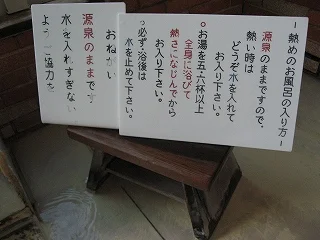 －熱めのお風呂の入り方－
源泉のままですので、
熱い時は
どうぞ水を入れて
お入り下さい。
○お湯を五・六杯以上
全身に浴びて
熱さになじんでから
お入り下さい。
○必ず、浴後は
水を止めて下さい。
おねがい
源泉のままです
水を入れすぎない
ようご協力を